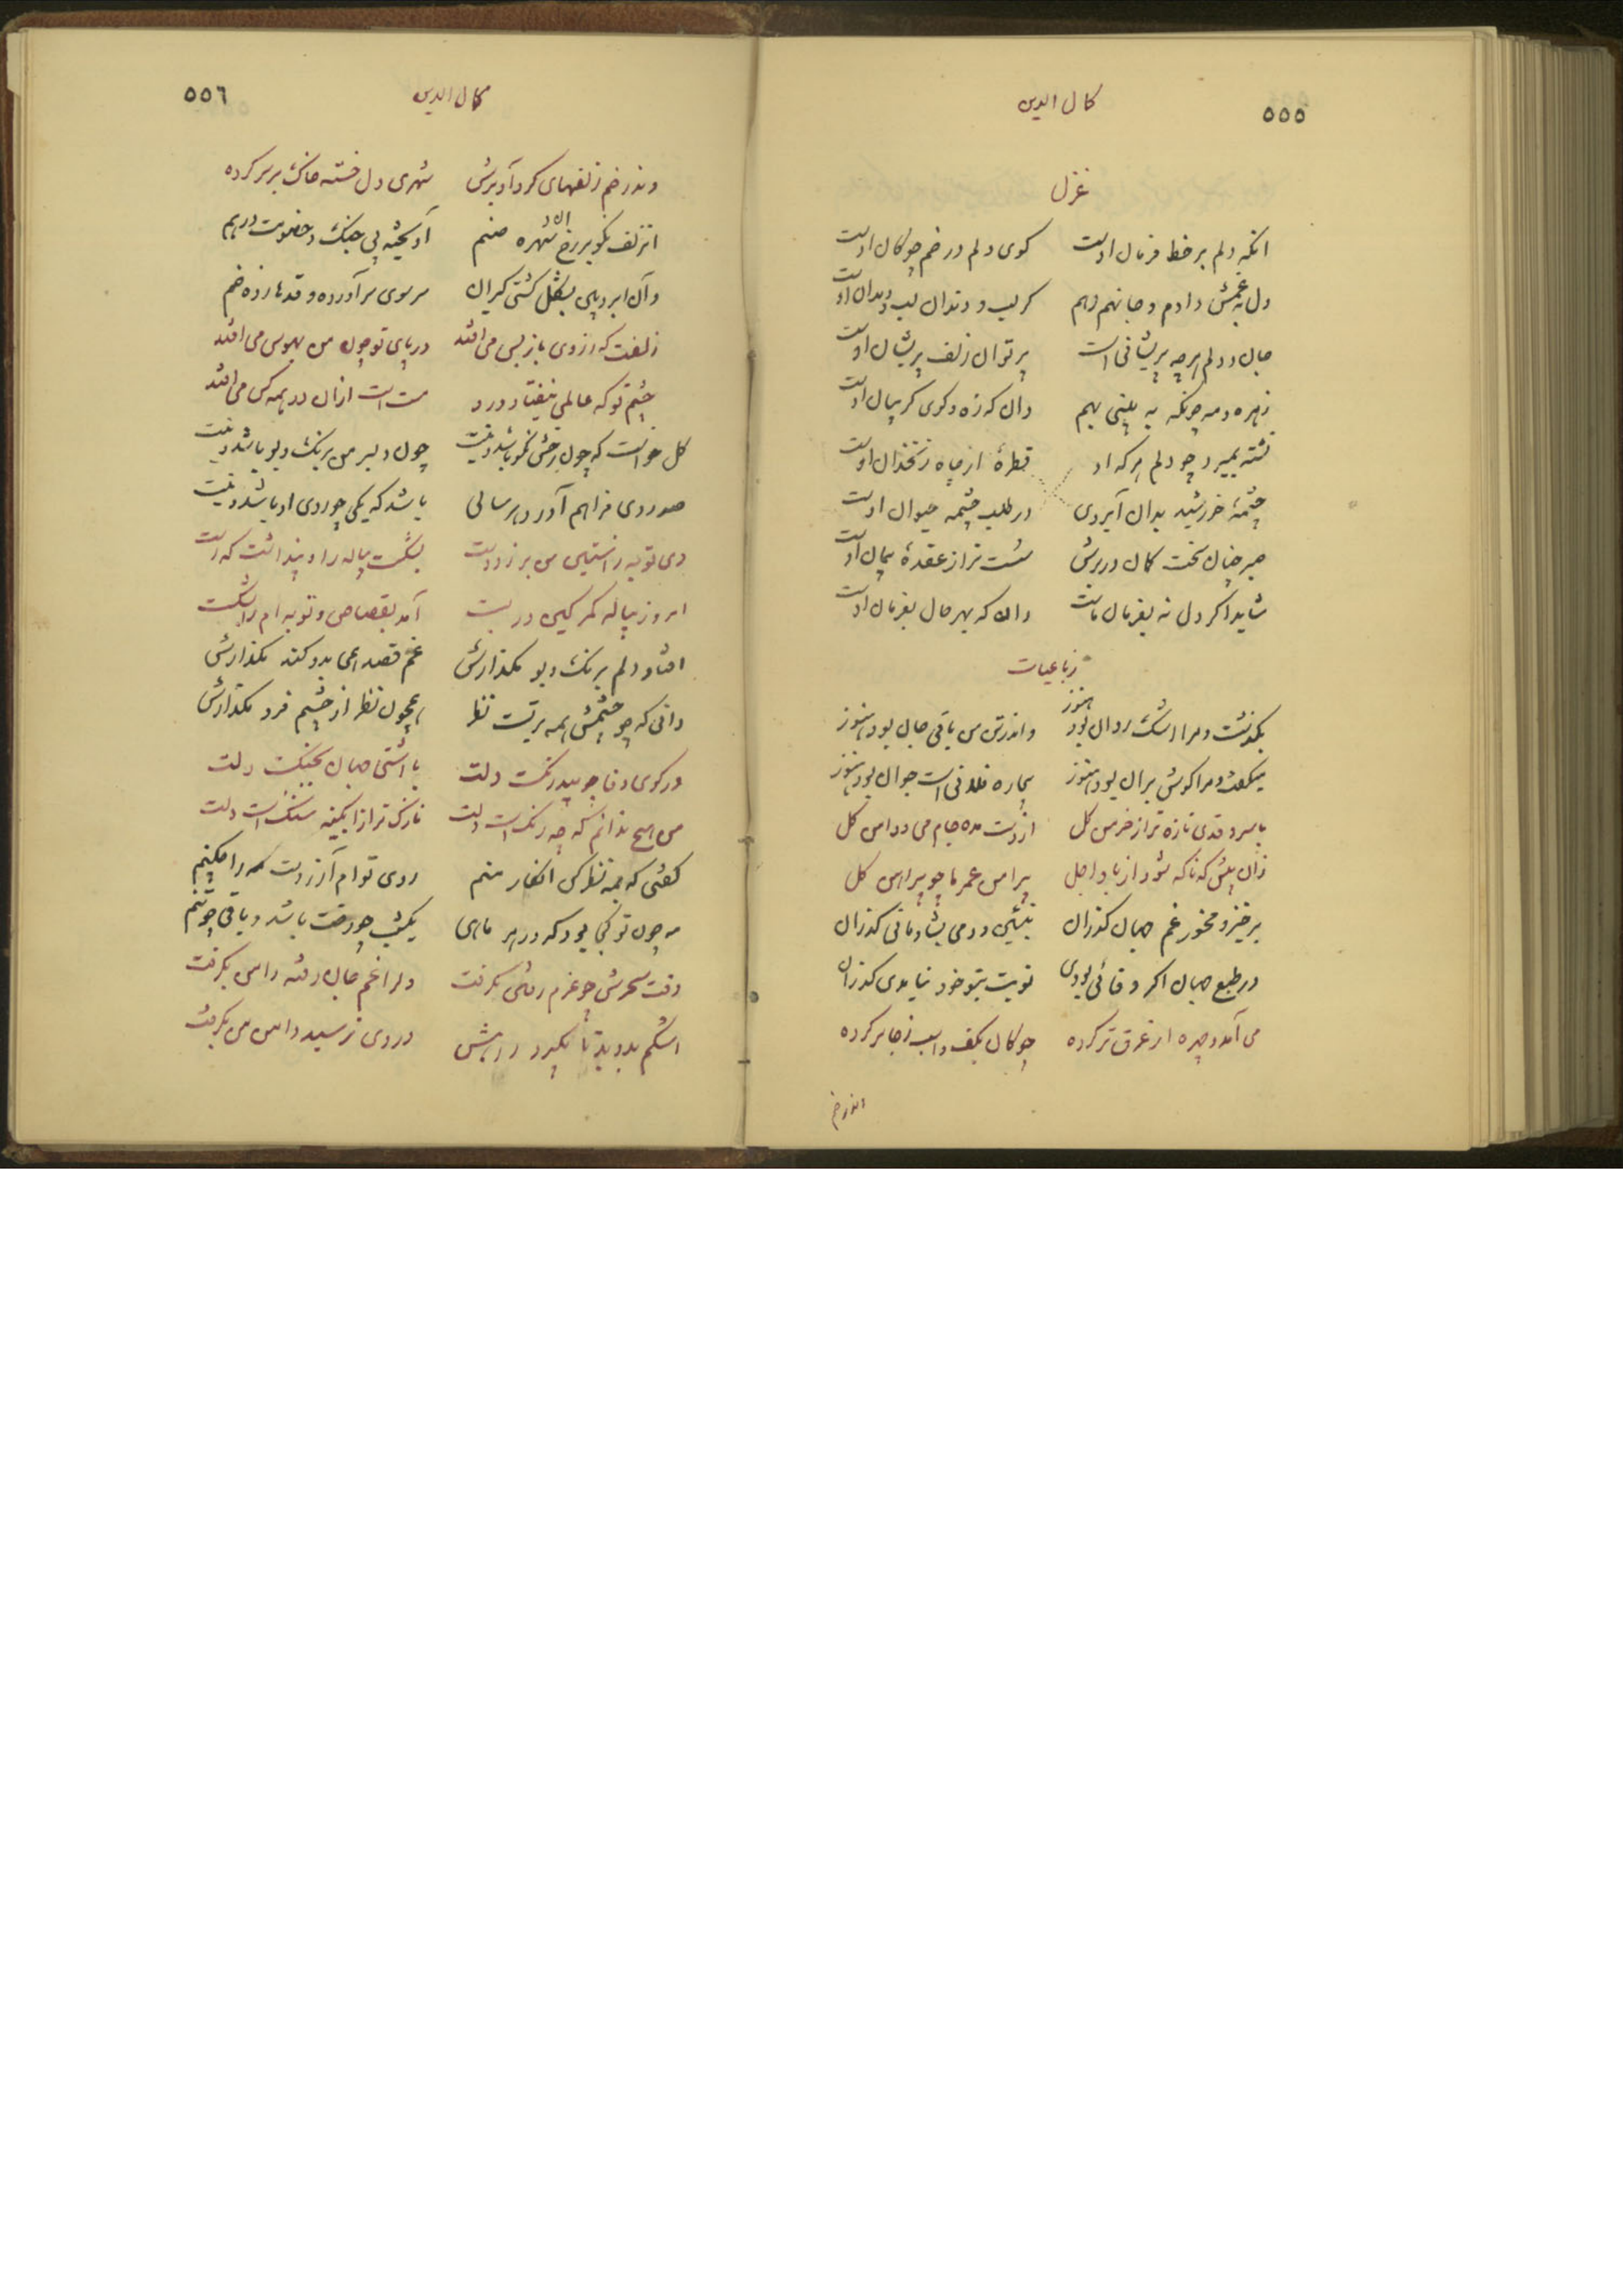 ٥٥٥
کمال الدین
غزل
انکه دلم بر خط فرمان اوست کوی دلم در خم چوکان اوست
دل به غمش دادم و جانهم دهم کر لب و دندان لب و دندان اوست
جان و دلم هر چه پریشانی است پرتو ان زلف پریشان اوست
زهره و مه چونکه به بینی بهم دان که زه و کوی کریبان اوست
تشنه بمیرد چو دلم هر که او قطرهٔ از چاه زنخدان اوست
چشمهٔ خورشید بدان آبروی در طلب چشمه حیوان اوست
صبر چنان سخت کمان در برش سست تر از عقدهٔ پیمان اوست
شاید اکر دل نه بفرمان ماست دان که بهر حال بفرمان اوست
رباعیات
بکذشت و مرا اشک روان بود هنوز واندر تن من باقی جان بود هنوز
میکفت و مرا کوش بران بود هنوز بیچاره فلانی است جوان بود هنوز
با سرو قدی تازه تر از خرمن کل از دست مده جام می و دامن کل
زان پیش که ناکه شود از باد اجل پیراهن عمر ما چو پیراهن کل
برخیز و مخور غم جهان کذران بنشین و دمی بشادمانی کذران
در طبع جهان اکر وفائی بودی نوبت بتو خود نیامدی کذران
می آمد و چهره از عرق تر کرده چوکان بکف و اسب ز جا بر کرده
اندر خم
٥٥٦
کمال الدین
وندر خم زلفهای کرد آویزش شهری دل خسته خاک بر سر کرده
از زلف نکو بر رخ ان شهره صنم آویخته بی جنک و خصومت درهم
وآن ابروی بشکل کشتی کیران سر سوی سر آورده و قدها زده خم
زلفت که ز روی باز پس می افتد در پای تو چون من بهوس می افتد
چشم تو که عالمی بیفتاد درد مست است ازان در همه کس می افتد
کل خواست که چون رخش نکو باشد و نیست چون دلبر من برنک و بو باشد و نیست
صد روی فراهم آورد هر سالی باشد که یکی چو روی او باشد و نیست
دی توبه راستین من بر زد دست بشکست پیاله را و پنداشت که رست
امروز پیاله کمر کین دربست آمد بقصاص و توبه ام را بشکست
افتاد دلم برنک و بو مکذارش غم قصد همی بدو کند مکذارش
دانی که چو چشمش همه بر تست نظر همچون نظر از چشم فرو مکذارش
در کوی وفا چو بیدرنکست دلت با اشتی جهان بجنکست دلت
من هیچ ندانم که چه رنکست دلت نازک تر از ابکینه سنک است دلت
کفتی که بمه نظر کن انکار منم روی توام آرزوست مه را چکنم
مه چون تو کجا بود که در هر ماهی یکشب چو رخت باشد و باقی چو تنم
وقت سحرش چو عزم رفتن بکرفت دل را غم جان رفته دامن بکرفت
اشکم بدوید تا بکیرد راهش در وی نرسید دامن من بکرفت